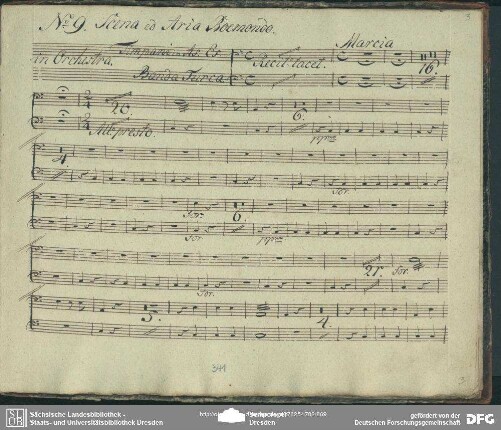 Nro 9. Scena ed Aria Boemondo.
3
Marcia
Timpani in As. Es
in Orchestra.
Recit: tacet.
16.
Banda Turca
20.
6.
Alle: presto.
ppmo
4.
For.
For.
6.
For.
ppmo
21.
For.
For.
5.
4.
341
Sächsische Landesbibliothek -
Staats- und Universitätsbibliothek Dresden
Dresden
gefördert von der
Deutschen Forschungsgemeinschaft
DFG